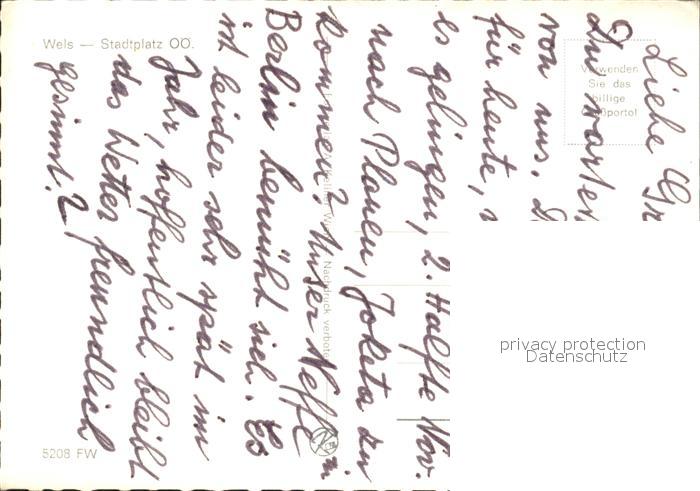 Wels — Stadtplatz OÖ.
Verwenden
Sie das
billige
Liebe
Du warte
von uns.
für heute,
es gelingen, 2. Hälfte Nov.
nach Plauen, Joketa zu
kommen? Unser Neffe in
Berlin bemüht sich. Es
ist leider sehr spät im
Jahr, hoffentlich bleibt
das Wetter freundlich
gesinnt?
Nachdruck verboten
5208 FW
privacy protection
Datenschutz